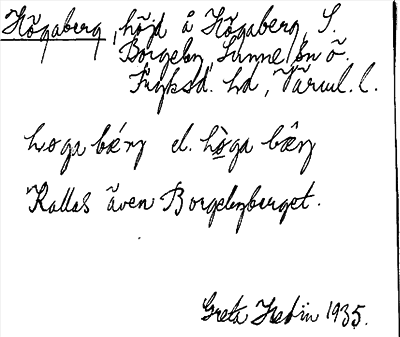 Högaberg, höjd å Högaberg, S.
Borgeby, Sunne sn ö.
Fryksd. hd, Värml. l.
hωga bǽrg el. hò̠ga bæ̂rg
Kallas även Borgebyberget.
Greta Hedin 1935.